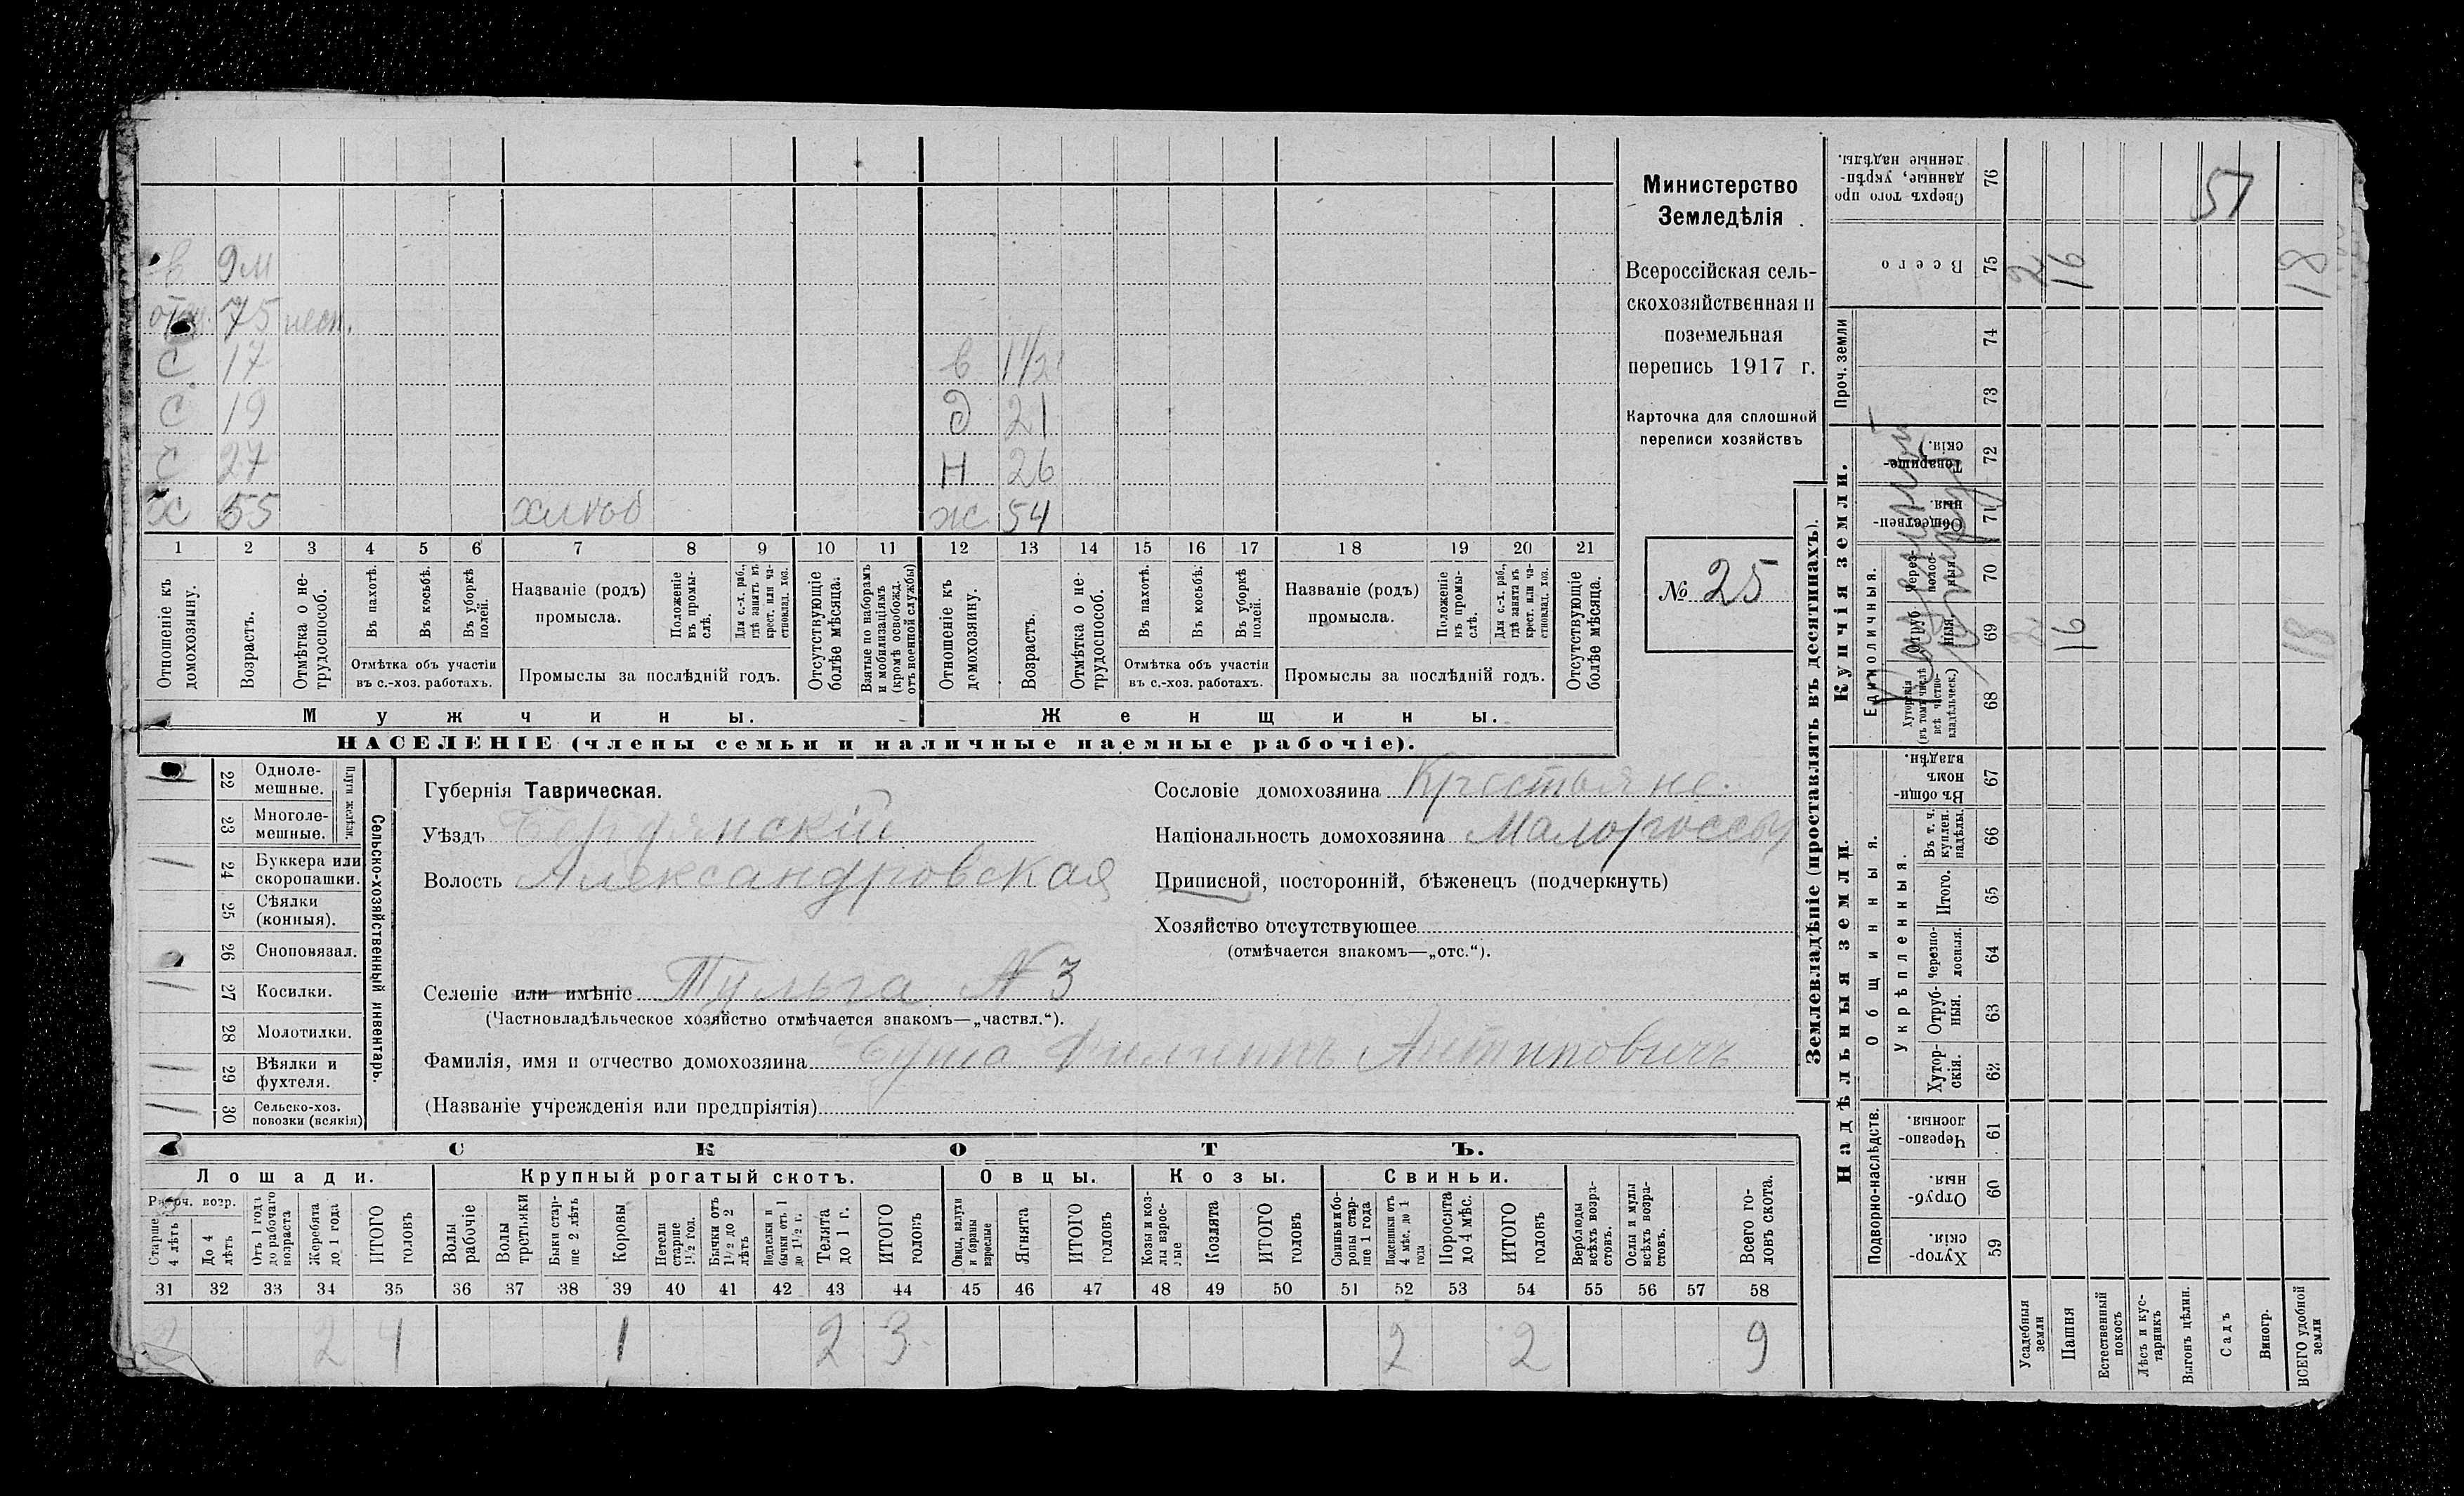 Министерство
Земледѣлія
Всероссійская сель-
скохозяйственная и
поземельная
перепись 1917 г.
Карточка для сплошной
переписи хозяйствъ
№ 25
в 9м
75 несп.
С 17 в 1 1/2
С 19 д 21
С 27 Н 26
х 55 хлѣб ж 54
1 2 3 4 5 6 7 8 9 10 11 12 13 14 15 16 17 18 19 20 21
Отношеніе къ домохозяину.
Возрастъ.
Отмѣтка о не-трудоспособ.
Въ пахотѣ.
Въ косьбѣ.
Въ уборкѣ полей.
Отмѣтка объ участіи
въ с.-хоз. работахъ.
Названіе (родъ)
промысла.
Положеніе въ промы-слѣ.
Для с.-х. раб., гдѣ занятъ въ крест. или ча-стновлад. хоз.
Промыслы за послѣдній годъ.
Отсутствующіе болѣе мѣсяца.
Взятые по наборамъ и мобилизаціямъ (кромѣ освобожд. отъ военной службы)
Отношеніе къ домохозяину.
Возрастъ.
Отмѣтка о не-трудоспособ.
Въ пахотѣ.
Въ косьбѣ.
Въ уборкѣ полей.
Отмѣтка объ участіи
въ с.-хоз. работахъ.
Названіе (родъ)
промысла.
Положеніе въ промы-слѣ.
Для с.-х. раб., гдѣ занята въ крест. или ча-стновлад. хоз.
Промыслы за послѣдній годъ.
Отсутствующіе болѣе мѣсяца.
Мужчины. Женщины.
НАСЕЛЕНІЕ (члены семьи и наличные наемные рабочіе).
22 Одноле-мешные.
23 Многоле-мешные.
Плуги желѣзн.
24 Буккера или скоропашки.
25 Сѣялки (конныя).
26 Сноповязал.
27 Косилки.
28 Молотилки.
29 Вѣялки и фухтеля.
30 Сельско-хоз. повозки (всякія)
Сельско-хозяйственный инвентарь.
Губернія Таврическая.
Уѣздъ Бердянскій
Волость Александровская
Селеніе или имѣніе Тульга N 3
(Частновладѣльческое хозяйство отмѣчается знакомъ—„частвл.“).
Фамилія, имя и отчество домохозяина Филиппъ Антиповичъ
(Названіе учрежденія или предпріятія)
Сословіе домохозяина Крестьяне.
Національность домохозяина Малороссы
Приписной, посторонній, бѣженецъ (подчеркнуть)
Хозяйство отсутствующее
(отмѣчается знакомъ—„отс.“).
СКОТЪ.
Лошади. Крупный рогатый скотъ. Овцы. Козы. Свиньи.
Рабоч. возр.
Старше 4 лѣтъ
До 4 лѣтъ
Отъ 1 года до рабочаго возраста
Жеребята до 1 года
ИТОГО головъ
Волы рабочіе
Волы третьяки
Быки стар-ше 2 лѣтъ
Коровы
Нетели старше 1½ год.
Бычки отъ 1½ до 2 лѣтъ
Подтелки и бычки отъ 1 до 1½ г.
Телята до 1 г.
ИТОГО головъ
Овцы, валухи и бараны взрослые
Ягнята
ИТОГО головъ
Козы и коз-лы взрос-лые
Козлята
ИТОГО головъ
Свиньи и бо-ровы стар-ше 1 года
Подсвинки отъ 4 мѣс. до 1 года
Поросята до 4 мѣс.
ИТОГО головъ
Верблюды всѣхъ возра-стовъ.
Ослы и мулы всѣхъ возра-стовъ.
Всего го-ловъ скота.
31 32 33 34 35 36 37 38 39 40 41 42 43 44 45 46 47 48 49 50 51 52 53 54 55 56 57 58
2 2 4 1 2 3 2 2 9
Землевладѣніе (проставлять въ десятинахъ).
Надѣльныя земли.
Подворно-наслѣдств.
Хутор-скія. 59
Отруб-ныя. 60
Черезпо-лосныя. 61
Общинныя.
Укрѣпленныя.
Хутор-скія. 62
Отруб-ныя. 63
Черезпо-лосныя. 64
Итого. 65
Въ т. ч. куплен. надѣлы. 66
Въ общин-номъ владѣн. 67
Купчія земли.
Единоличныя.
Хуторскія (въ томъ числѣ всѣ частно-владѣльческ.) 68
Отруб-ныя. 69
Через-полос-ныя. 70
Обществен-ныя. 71
Товарище-скія. 72
Проч. земли
73
74
Всего 75
Сверхъ того про-данные, укрѣп-ленные надѣлы. 76
Усадебныя земли 2 2
Пашня 16 16
Естественный покосъ
Лѣсъ и кус-тарникъ
Выгонъ цѣлин.
Садъ
Виногр.
ВСЕГО удобной земли 18 18
51